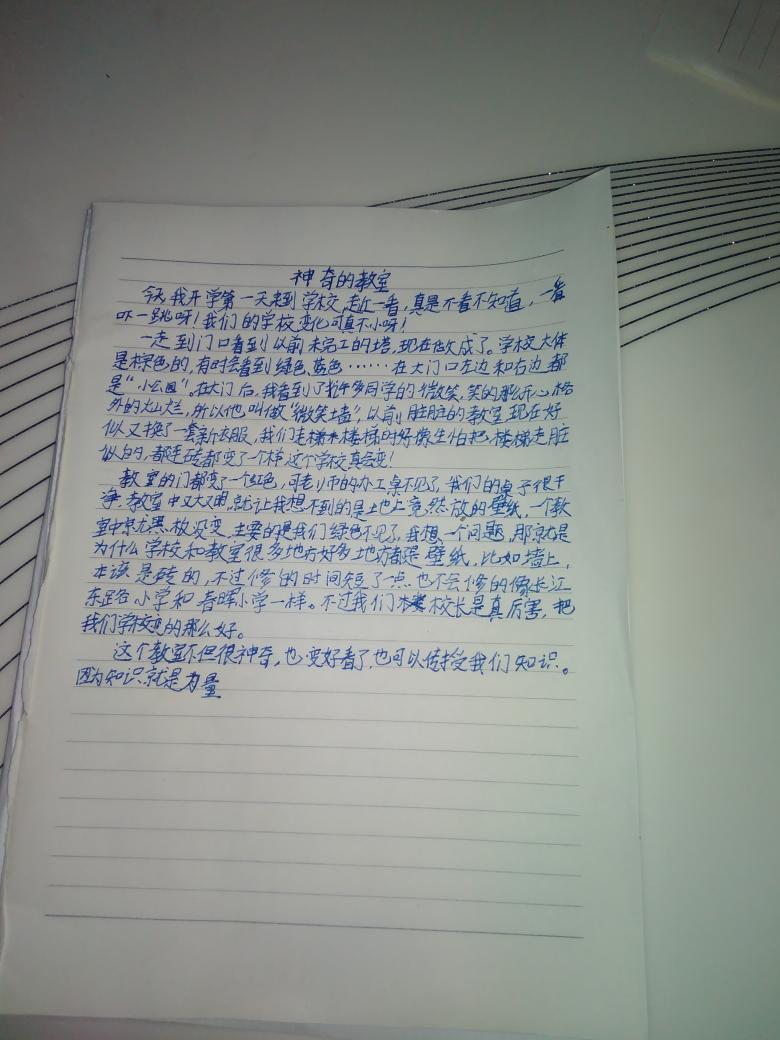 神奇的教室
今天,我开学第一天来到学校,走近一看,真是不看不知道,一看
吓一跳呀!我们的学校变化可真不小呀!
一走到门口看到以前未完工的塔,现在做成了。学校大体
是棕色的,有时会看到绿色、黄色……在大门口左边和右边都
是“小公园”。在大门后,我看到了许多同学的微笑,笑的那么开心,格
外的灿烂,所以他叫做“微笑墙”,以前脏脏的教室现在好
似又换了一套新衣服,我们走楼梯时好像生怕把楼梯走脏
似的,都连砖都变了个样,这个学校真会变!
教室的门都变了一个红色,可老师的办工桌不见了,我们的桌子很干
净,教室中又大又明,就让我想不到的是土也上竟然放的壁纸,一个教
室中就黑板没变,主要的是我们绿色不见了,我想一个问题,那就是
为什么学校和教室很多地方好多地方都是壁纸,比如墙上,
本该是砖的,不过修的时间短了一点也不会修的像长江
东路小学和春晖小学一样。不过我们校长是真厉害,把
我们学校变的那么好。
这个教室不但很神奇,也变好看了,也可以传授我们知识。
因为知识就是力量